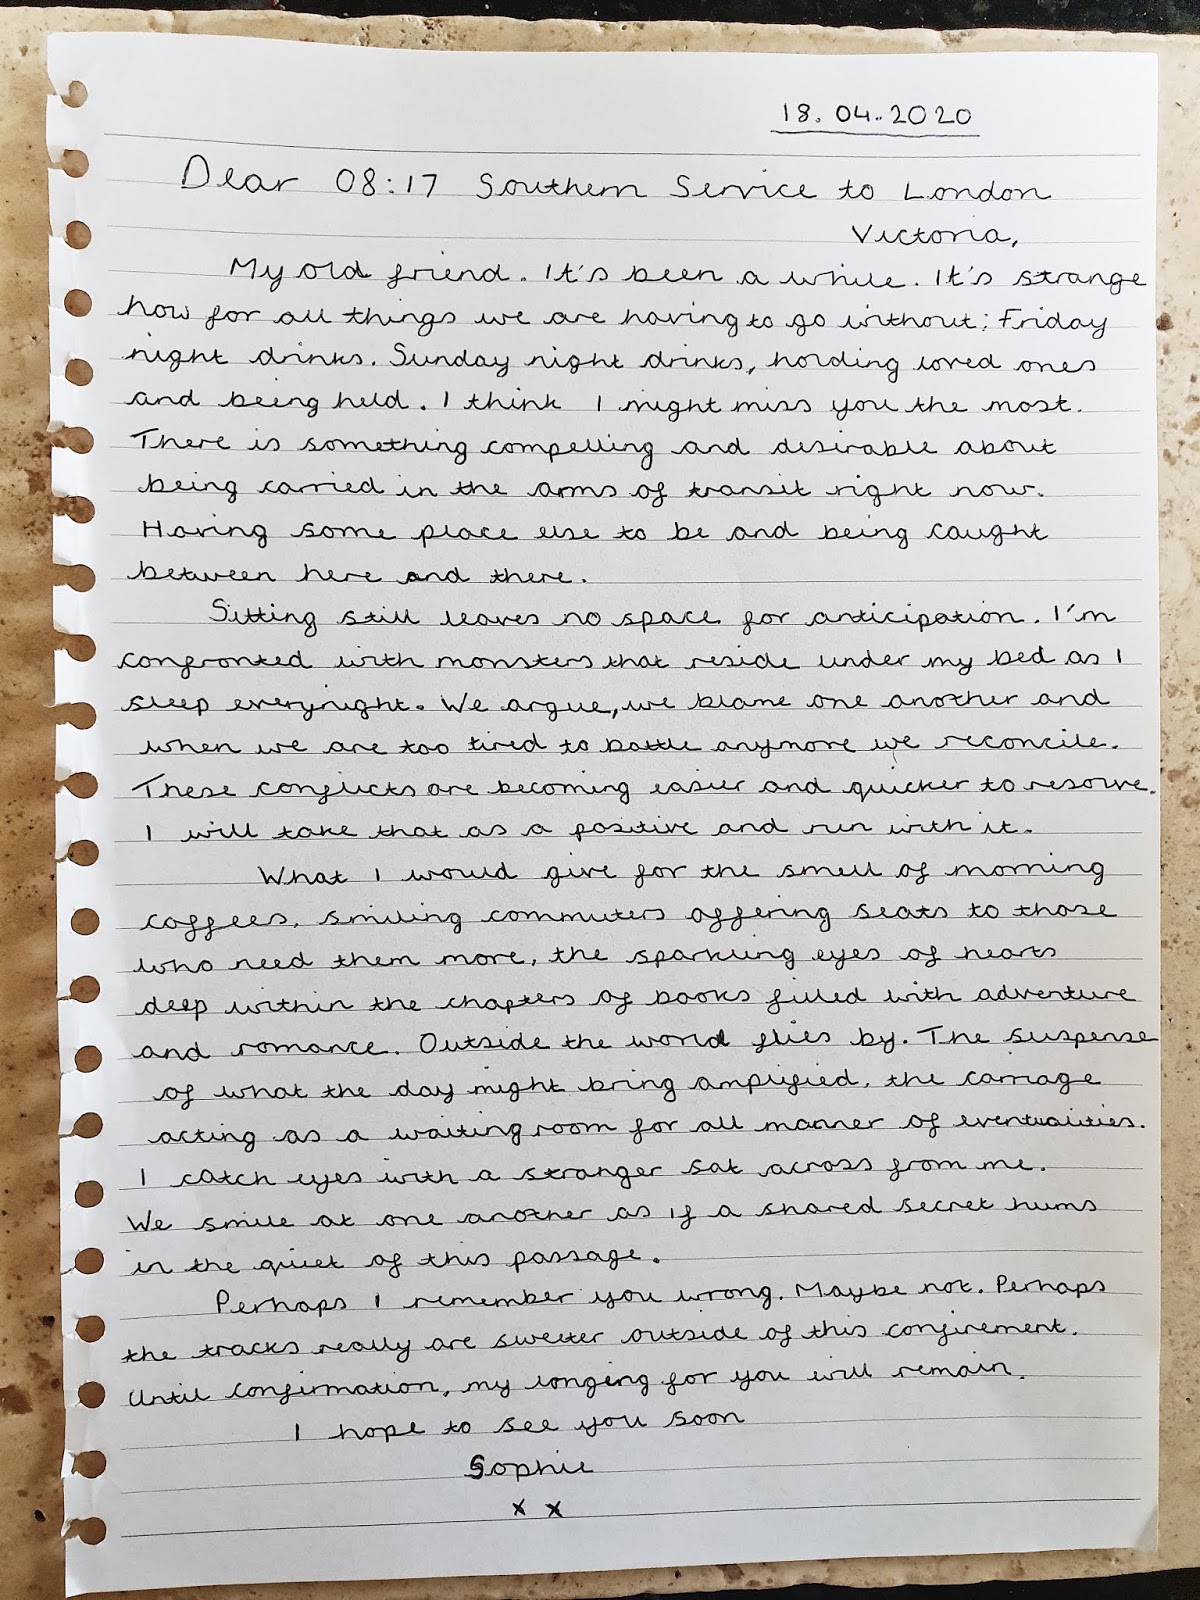 18.04.2020
Dear 08:17 Southern Service to London
Victoria,
My old friend. It's been a while. It's strange
how for all things we are having to go without; Friday
night drinks. Sunday night drinks, holding loved ones
and being held. I think I might miss you the most.
There is something compelling and desirable about
being carried in the arms of transit right now.
Having some place else to be and being caught
between here and there.
Sitting still leaves no space for anticipation. I'm
confronted with monsters that reside under my bed as I
sleep everynight. We argue, we blame one another and
when we are too tired to battle anymore we reconcile.
These conflicts are becoming easier and quicker to resolve.
I will take that as a positive and run with it.
What I would give for the smell of morning
coffees. smiling commuters offering seats to those
who need them more, the sparkling eyes of hearts
deep within the chapters of books filled with adventure
and romance. Outside the world flies by. The suspense
of what the day might bring amplified, the carriage
acting as a waiting room for all manner of eventualities.
I catch eyes with a stranger sat across from me.
We smile at one another as if a shared secret hums
in the quiet of this passage.
Perhaps I remember you wrong. Maybe not. Perhaps
the tracks really are sweeter outside of this confinement.
Until confirmation, my longing for you will remain.
I hope to see you soon
Sophie
x x